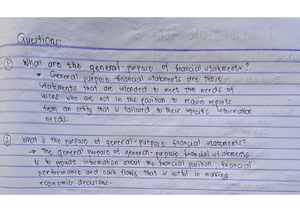 Questions:
① What are the general-purpose of financial statements?
→ General purpose financial statements are those
statements that are intended to meet the needs of
users who are not in the position to require reports
from an entity that is tailored to their specific information
needs.
② What is the purpose of general-purpose financial statements?
→ The general purpose of general-purpose financial statements
is to provide information about the financial position, financial
performance and cash flows that is useful in making
economic decisions.